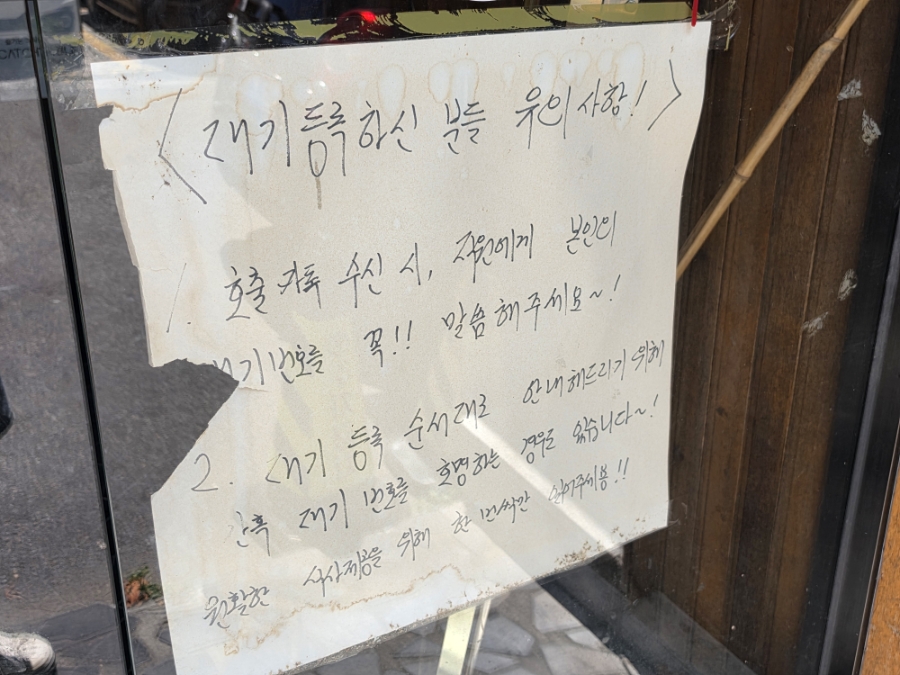 <대기 등록하신 분들 유의사항!>
1. 호출 카톡 수신 시, 직원에게 본인의
대기번호를 꼭!! 말씀해주세요~!
2. 대기 등록 순서대로 안내해드리기 위해
간혹 대기 번호를 호명하는 경우도 있습니다~!
원활한 식사제공을 위해 한 번씩만 읽어주세용!!